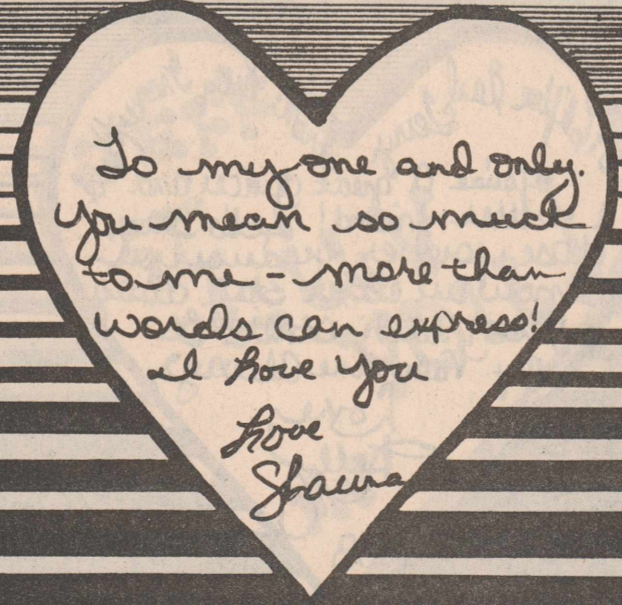 To my one and only.
You mean so much
to me - more than
words can express!
I love you
Love
Shauna